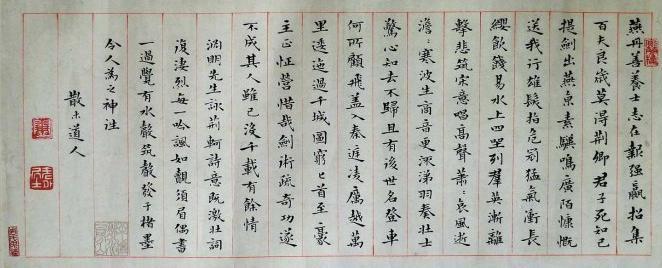 燕丹善養士志在報强嬴招集
百夫良歲莫得荆卿君子死知己
提劍出燕京素驥鳴廣陌慷慨
送我行雄髮指危冠猛氣衝長
纓飲餞易水上四坐列羣英漸離
擊悲筑宋意唱高聲蕭〻哀風逝
澹〻寒波生商音更流涕羽奏壮士
驚心知去不歸且有後世名登車
何所顧飛盖入秦庭凌厲越萬
里逶迤過千城圖窮匕首至豪
主正怔營惜哉劍術疏奇功遂
不成其人雖已没千載有餘情
淵明先生詠荆軻詩意既激壮詞
復凄烈每一吟諷如覩須眉偶書
一過覺有水聲筑聲發于楮墨
令人為之神往
散木道人